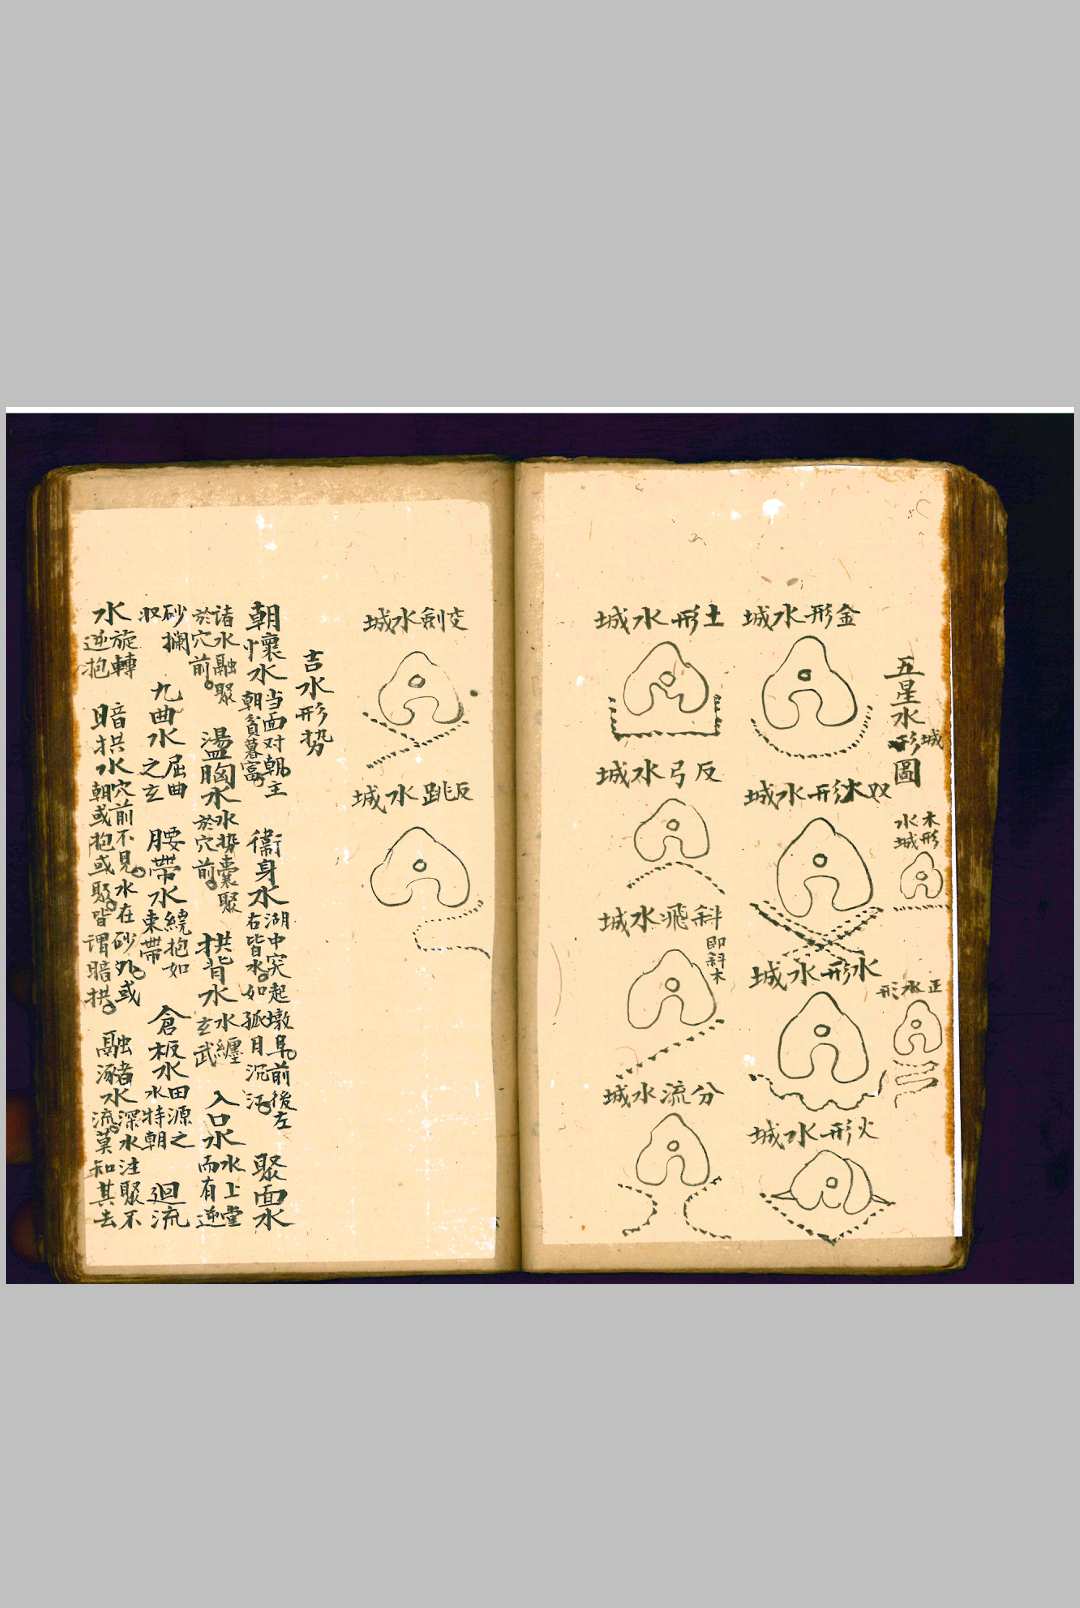 五星水城形圖
木形水城
正水形
金形水城
双木形水城
水形水城
火形水城
土形水城
反弓水城
斜飛水城
即斜木
分流水城
交劍水城
反跳水城
吉水形势
朝懷水 当面对朝主朝貧暮富 衞身水 湖中突起墩阜前後左右皆水如孤月沉江 聚面水
諸水融聚於穴前 盪胸水 水势囊聚於穴前 拱背水 水纏玄武 入口水 水上堂而有逆
砂攔収 九曲水 屈曲之玄 腰帶水 繞抱如束帶 倉板水 田源之水特朝 迴流
水 旋轉逆抱 暗拱水 穴前不見水在砂外或朝或抱或聚皆謂暗拱 融瀦水 深水注聚不流莫知其去